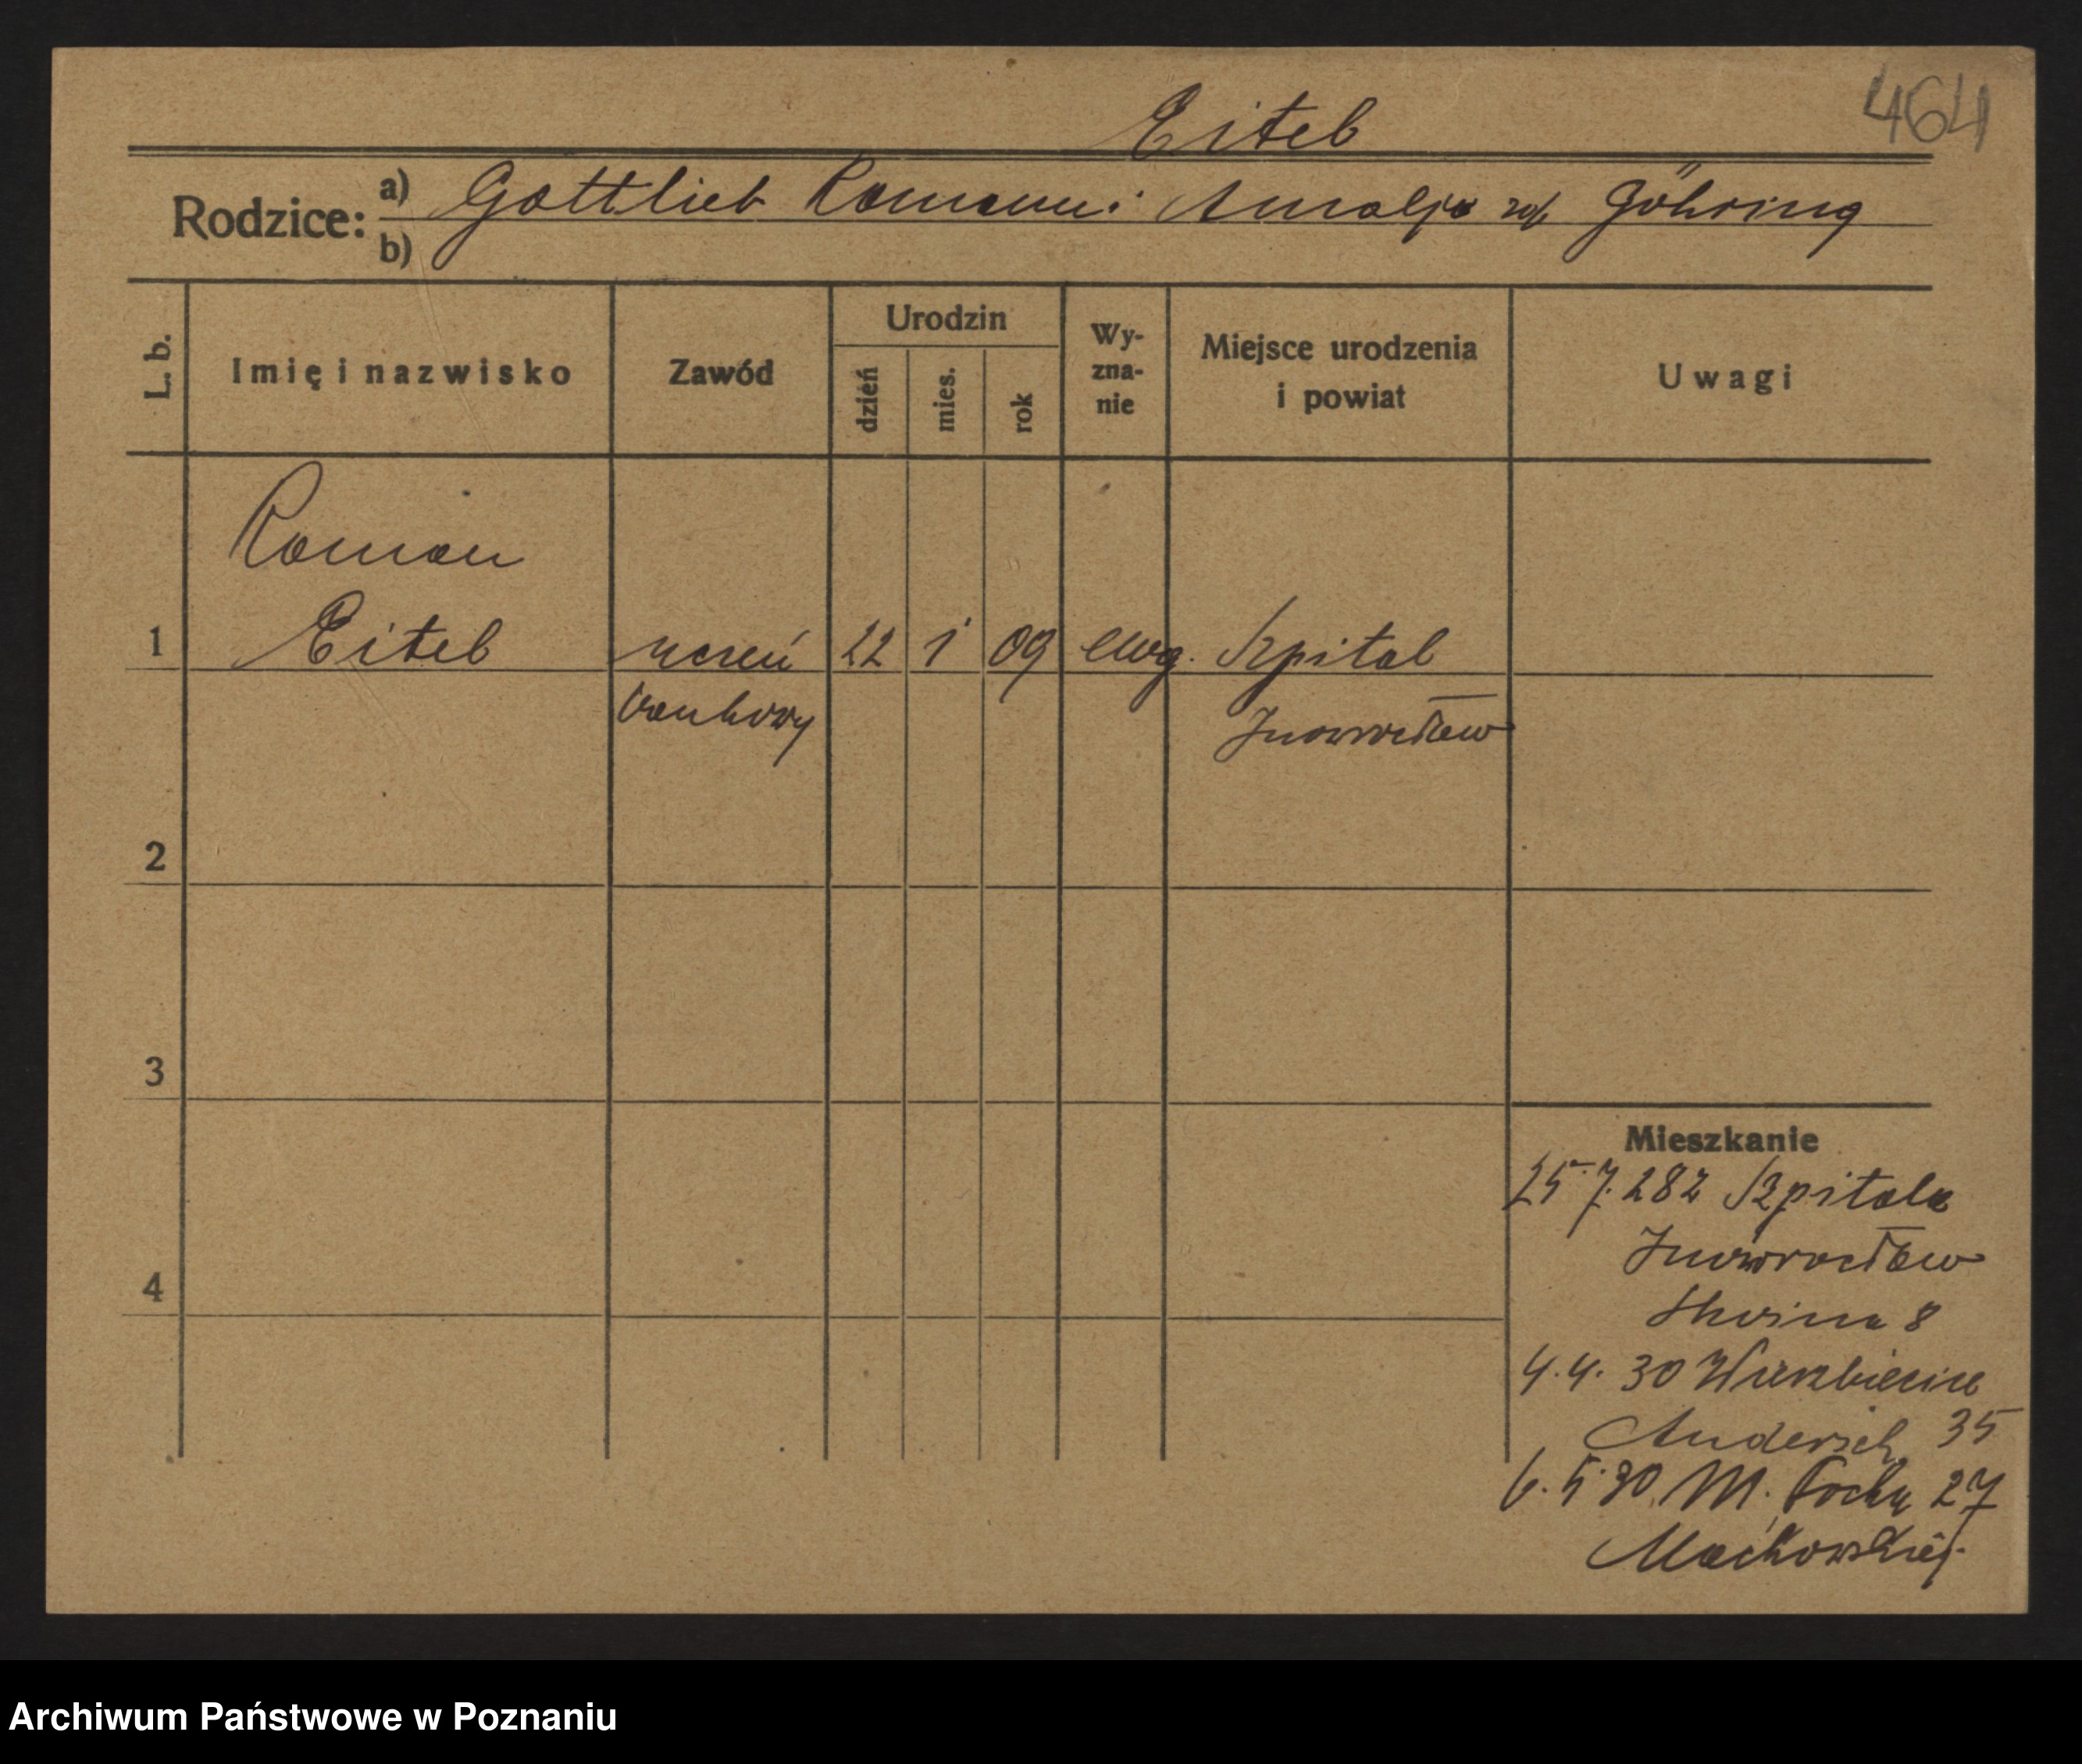 464
Eiteb
Rodzice: a) Gottlieb Roman i Amalja zd Göhring
b)
L. b.
Imię i nazwisko
Zawód
Urodzin
dzień
mies.
rok
Wy-
zna-
nie
Miejsce urodzenia
i powiat
Uwagi
Roman
1 Eiteb uczeń 22 1 09 ewg. Szpital
bankowy Inowrocław
2
3
4
Mieszkanie
25.7.28 z Szpitala
Inowrocław
8
4.4.30 Wierzbięcice
Andersch 35
6.5.30 M. Focha 27
Maćkowskiej
Archiwum Państwowe w Poznaniu